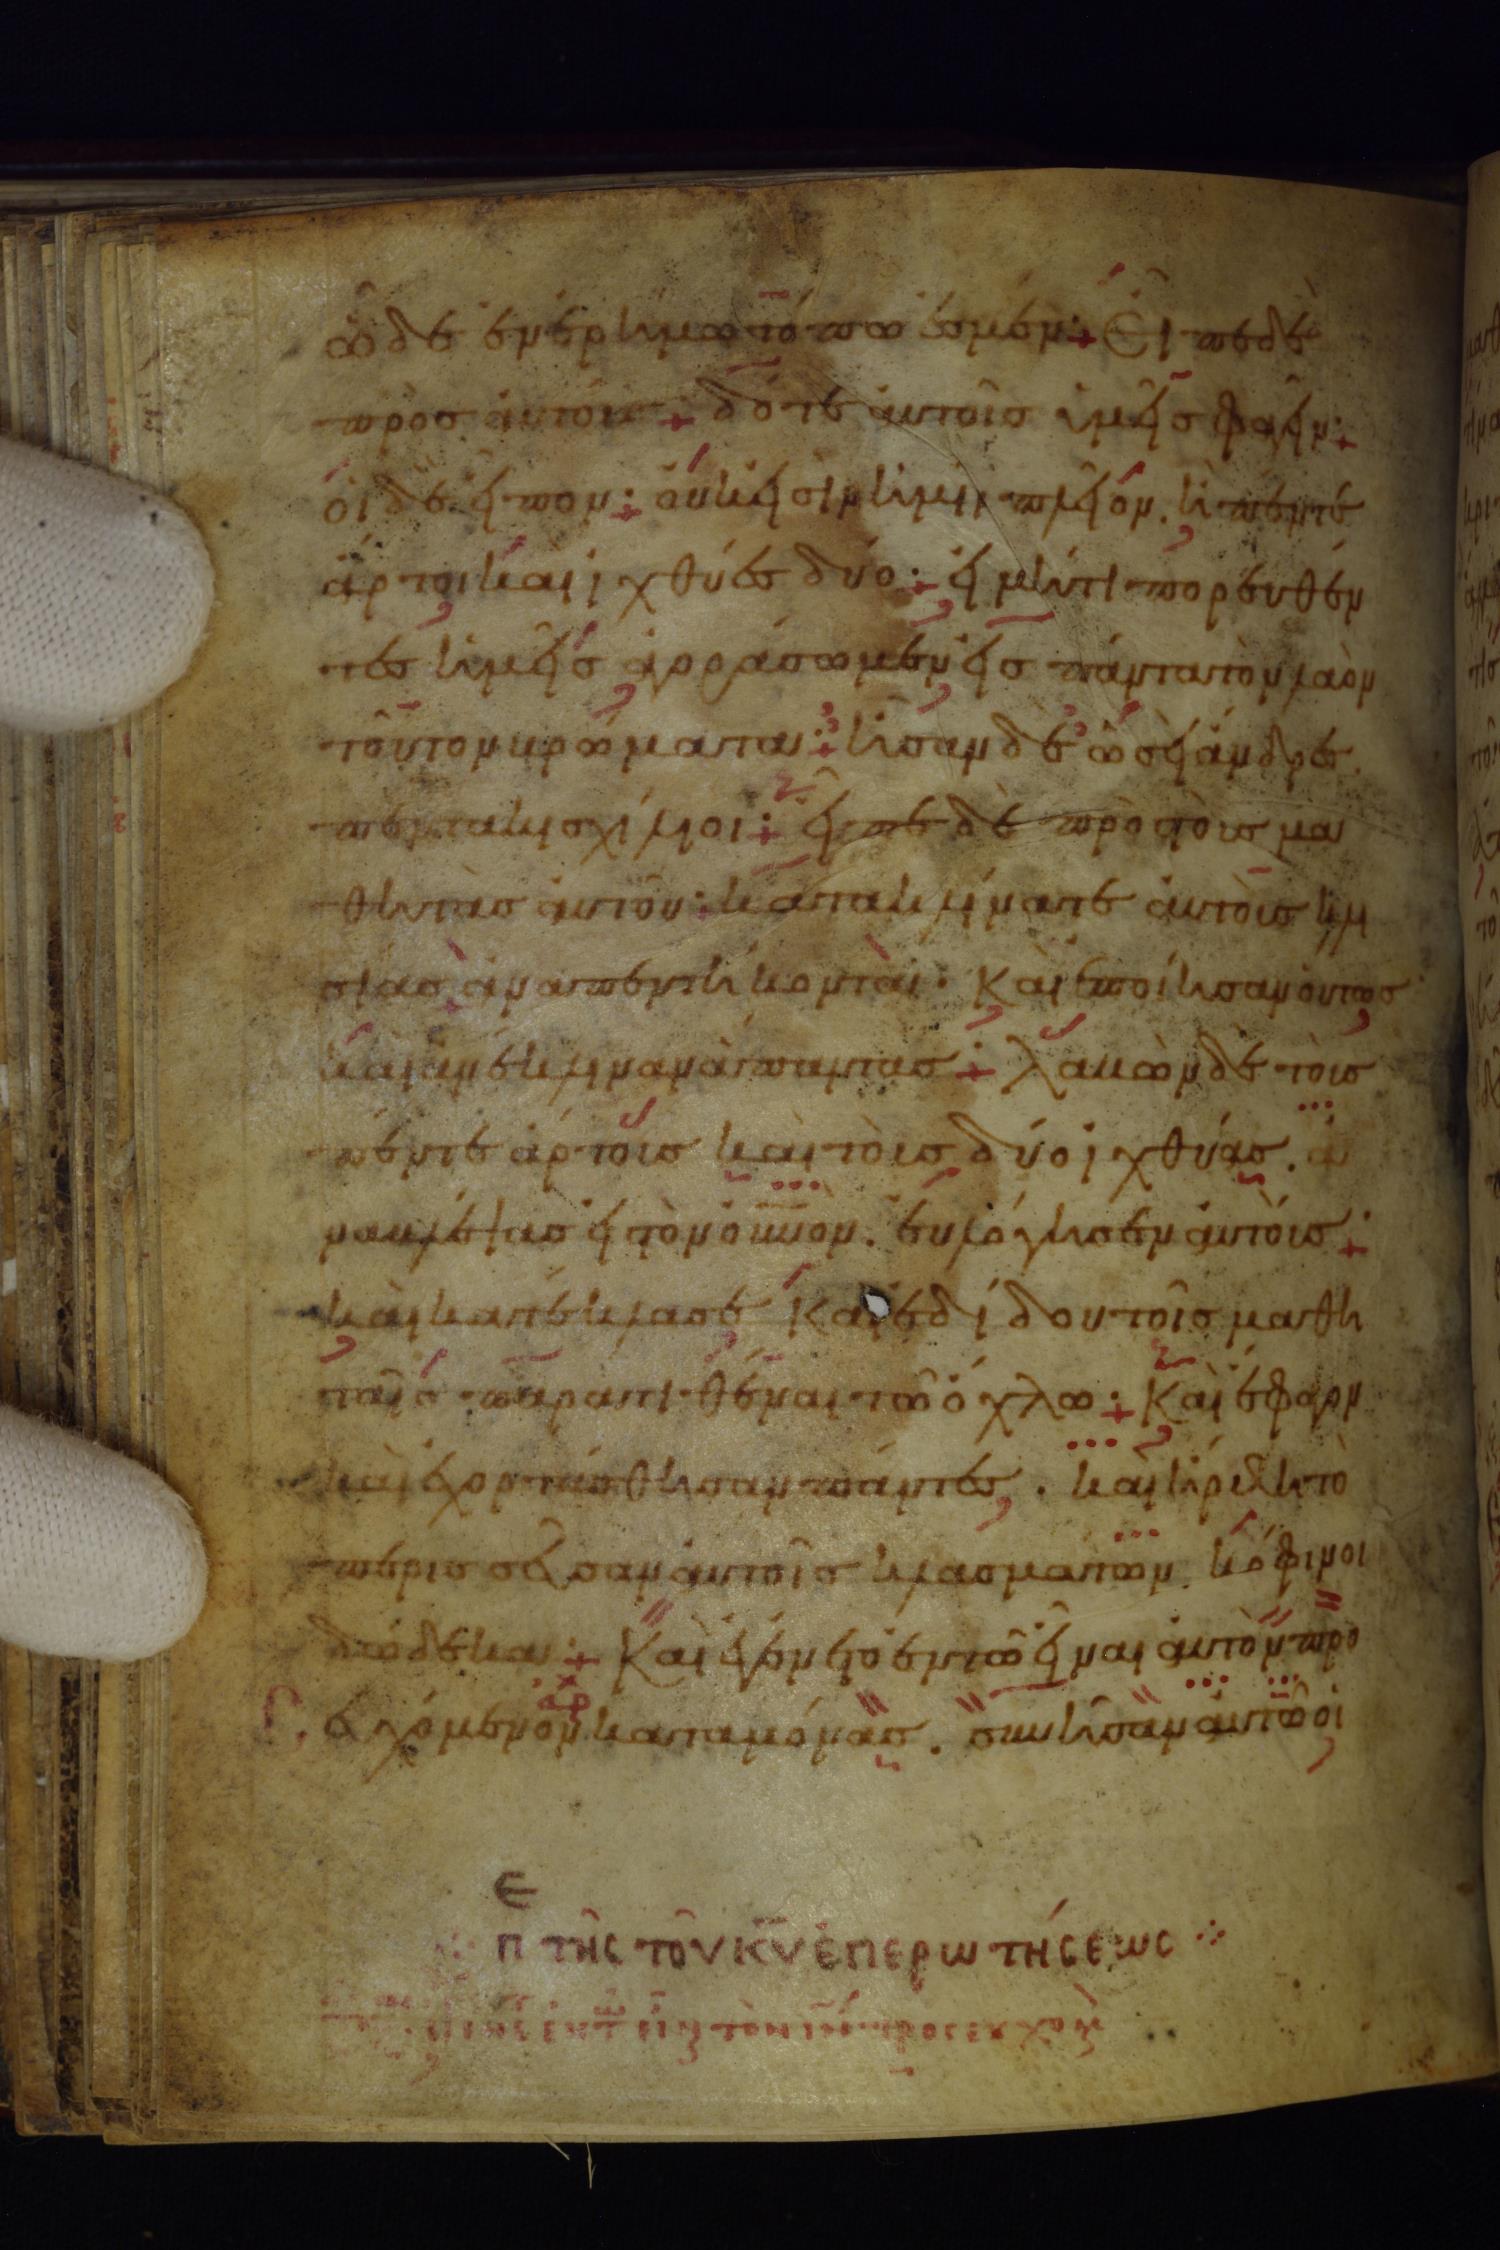 ὧδε ἐν ἐρήμω τόπω ἐσμέν· Εἶπε δὲ
πρὸς αὐτούς· δότε αὐτοῖς ὑμεῖς φαγεῖν·
οἱ δὲ εἶπον· οὐκ εἰσὶν ἡμῖν πλεῖον. ἢ πέντε
ἄρτοι καὶ ἰχθύες δύο· εἰ μή τι πορευθέν
τες ἡμεῖς ἀγοράσωμεν εἰς πάντα τὸν λαὸν
τοῦτον βρώματα· ἦσαν δὲ ὡσεὶ ἄνδρες
πεντακισχίλιοι· εἶπε δὲ πρὸς τοὺς μα
θητὰς αὐτοῦ· κατακλίνατε αὐτοὺς κλι
σίας ἀνὰ πεντήκοντα· Καὶ ἐποίησαν οὕτως
καὶ ἀνέκλιναν ἅπαντας· λαβὼν δὲ τοὺς
πέντε ἄρτους καὶ τοὺς δύο ἰχθύας. ἀ
ναβλέψας εἰς τὸν οὐνον. εὐλόγησεν αὐτούς·
καὶ κατέκλασε Καὶ ἐδίδου τοῖς μαθη
ταῖς παρατιθέναι τῶ ὄχλω· Καὶ ἔφαγον
καὶ ἐχορτάσθησαν πάντες. καὶ ἤρθη τὸ
περισσεῦσαν αὐτοῖς κλασμάτων κόφινοι
δώδεκα· Καὶ ἐγένετο ἐν τῶ εἶναι αὐτὸν προ
ευχόμενον καταμόνας. συνῆσαν αὐτῶ οἱ
Π ΤΗΣ ΤΟΥ ΚΥ ἘΠΕΡΩΤΗΣΕΩΣ